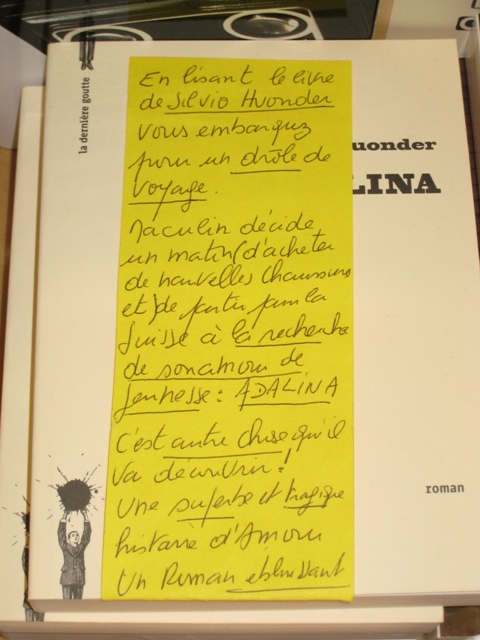 la dernière goutte
uonder
LINA
En lisant le livre
de Silvio Huonder
vous embarquez
pour un drôle de
voyage.
Maculin décide
un matin (d'acheter
de nouvelles chaussures
et) de partir pour la
Suisse à la recherche
de son amour de
jeunesse : ADALINA
C'est autre chose qu'il
va découvrir !
Une superbe et tragique
histoire d'Amour
Un Roman éblouissant
roman